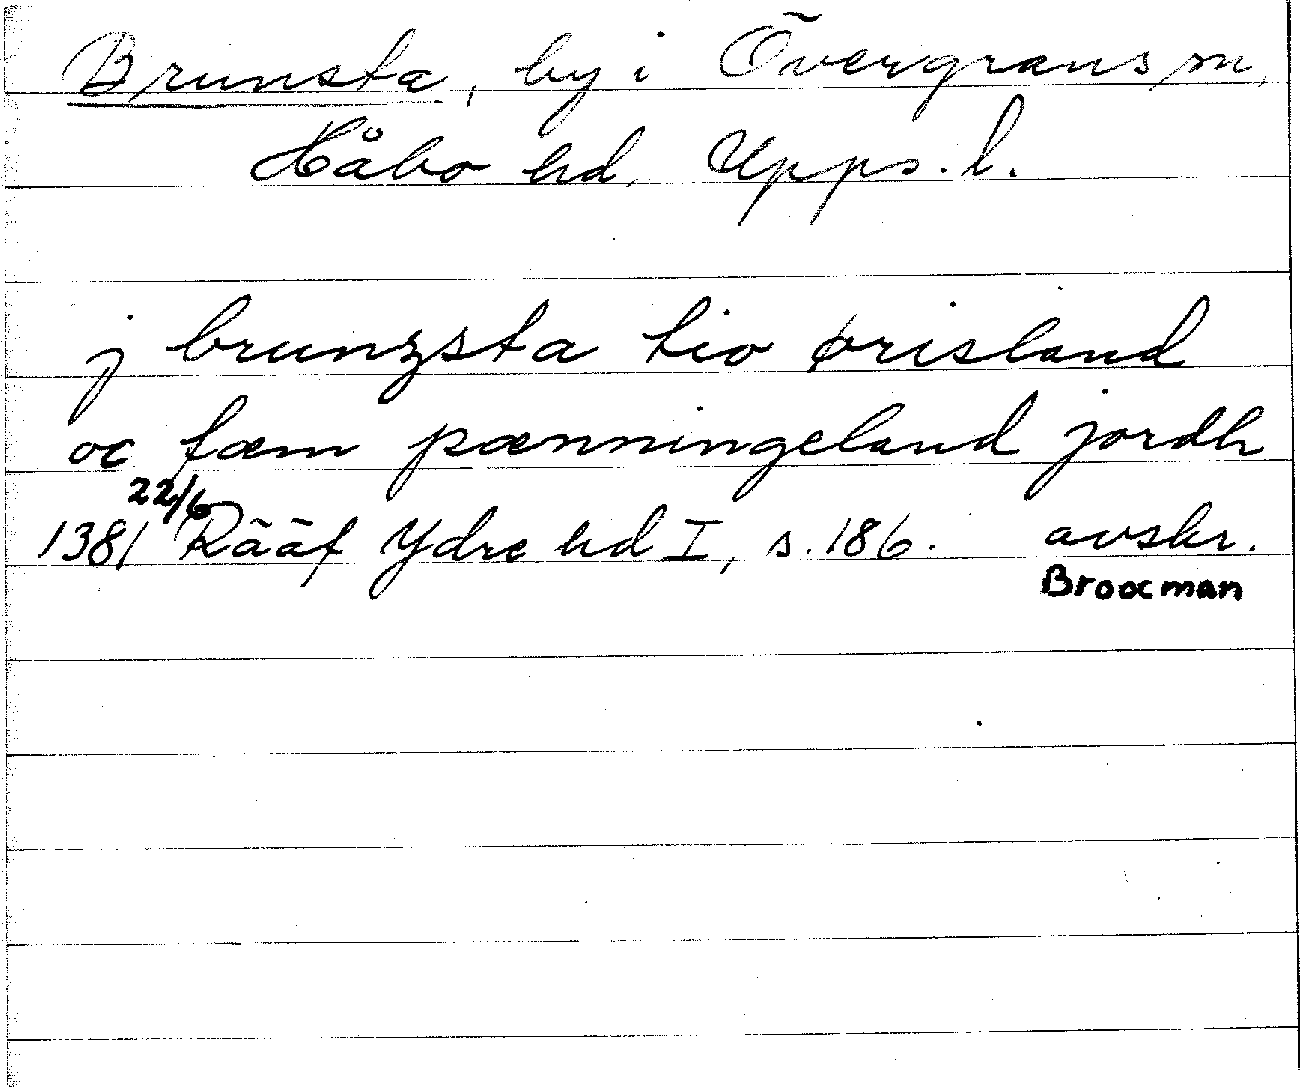 Brunsta, by i Övergrans sn,
Håbo hd, Upps. l.
j brunzsta tio ørisland
oc fæm pænningeland jordh
1381 22/6 Rääf Ydre hd I, s. 186. avskr.
Broocman